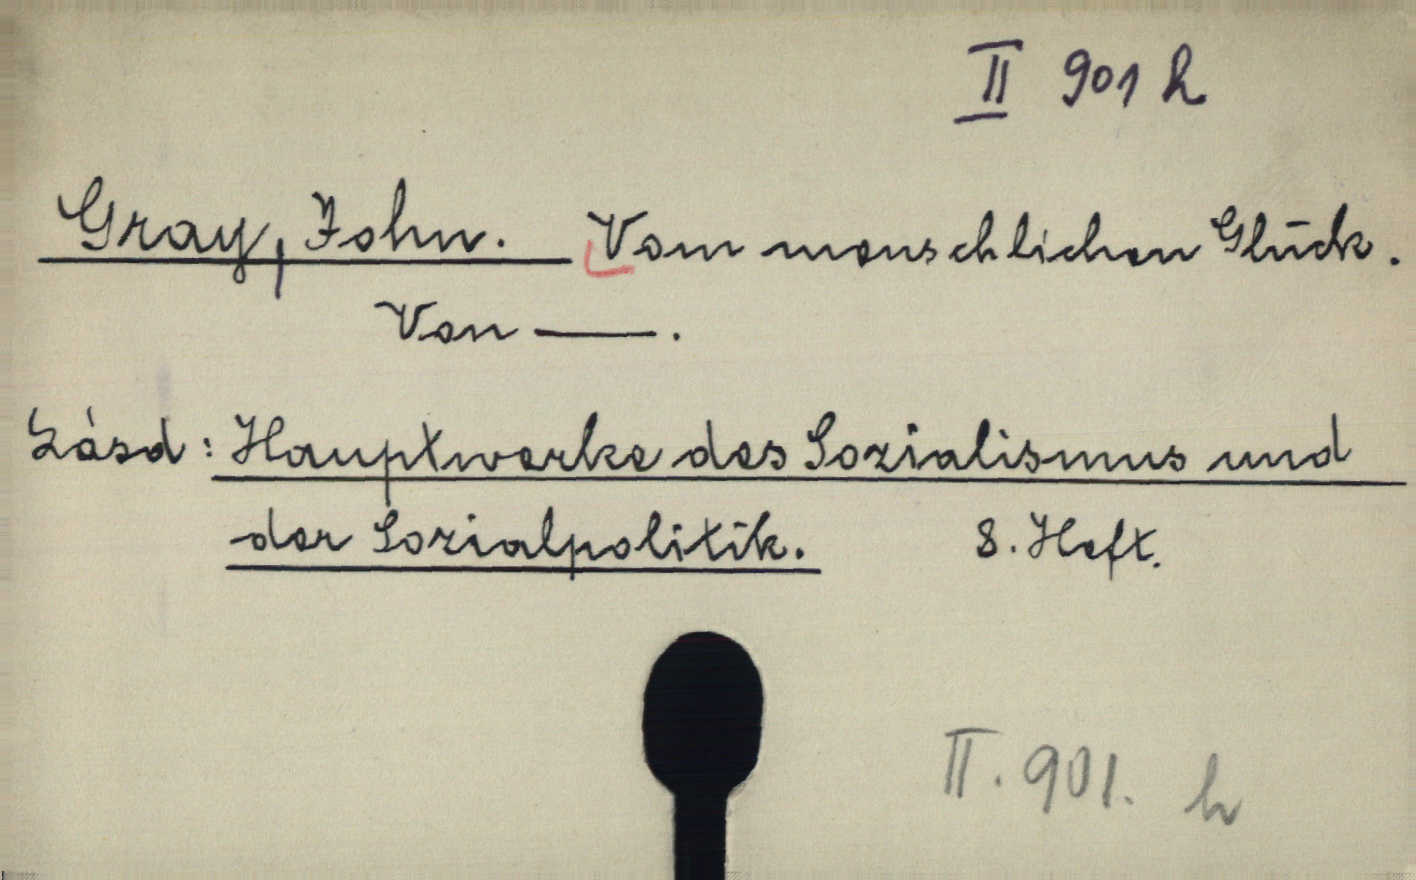 II 901 h
Gray, John. Vom menschlichen Glück.
Von ——.
Lásd: Hauptwerke des Sozialismus und
der Sozialpolitik. 8. Heft.
II. 901. h